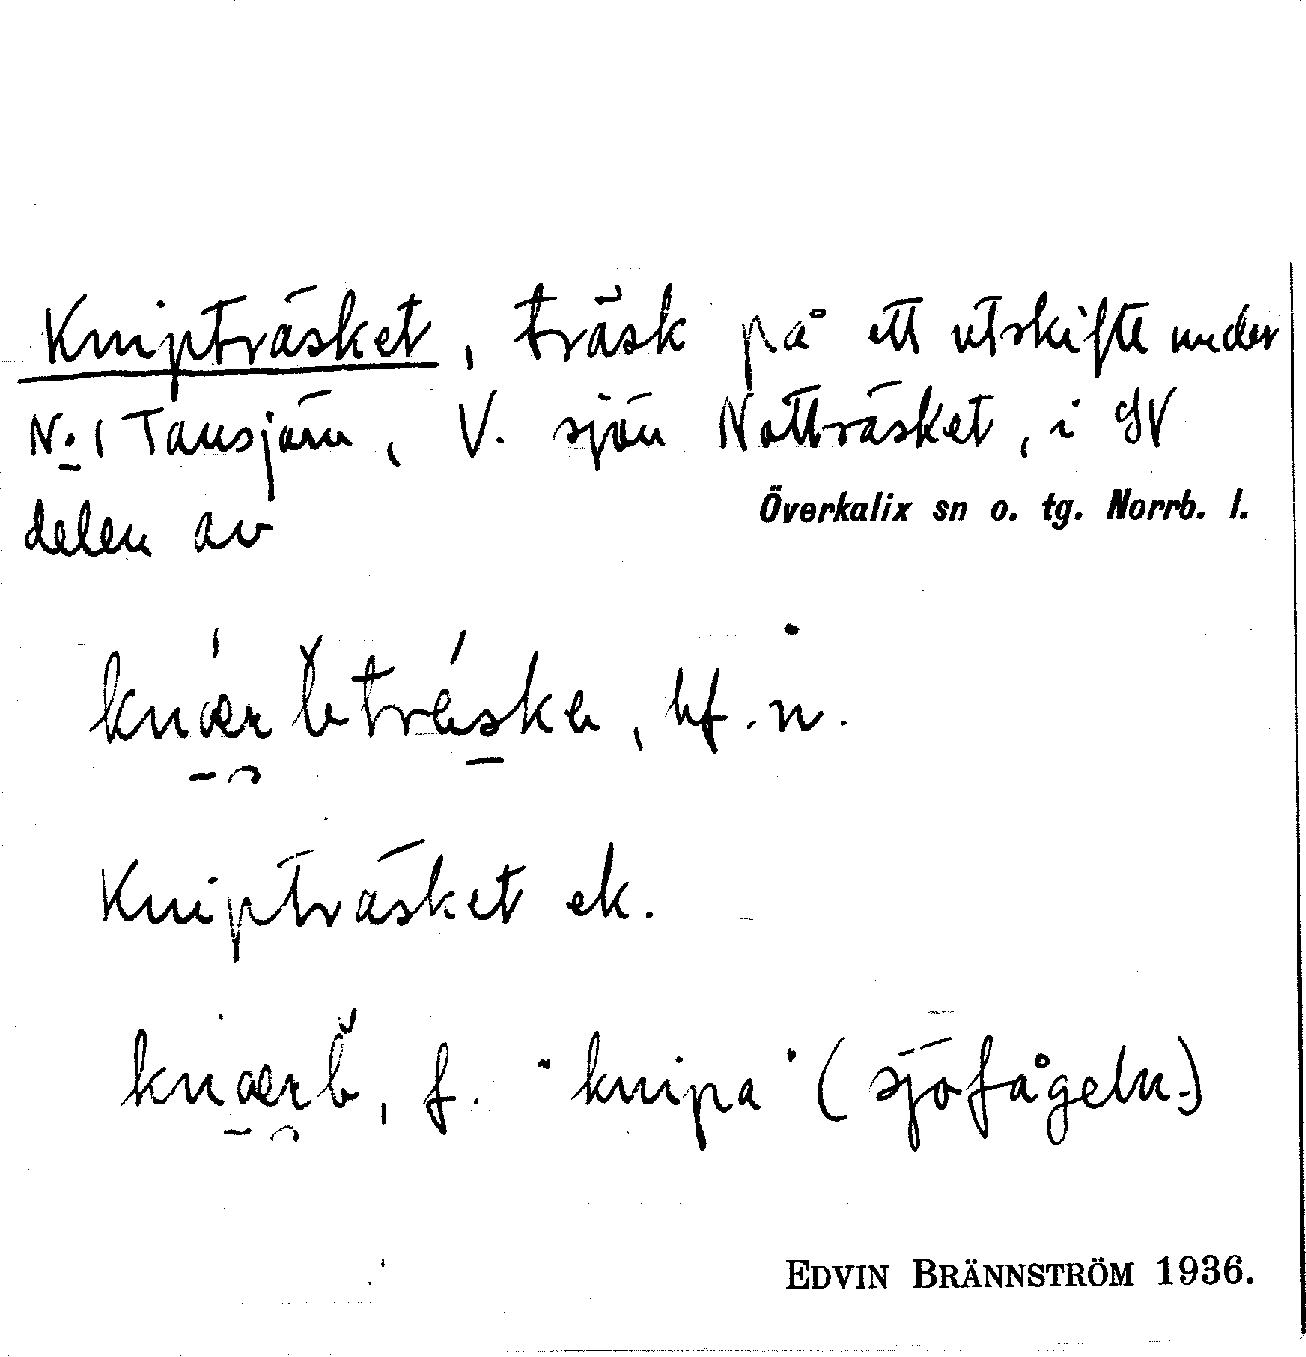 Knipträsket, träsk på ett utskifte under
No 1 Tansjärn, V. sjön Nattträsket, i SV
delen av Överkalix sn o. tg. Norrb. l.
bf. n.
Knipträsket ek.
f. "knipa" (sjöfågeln.)
EDVIN BRÄNNSTRÖM 1936.